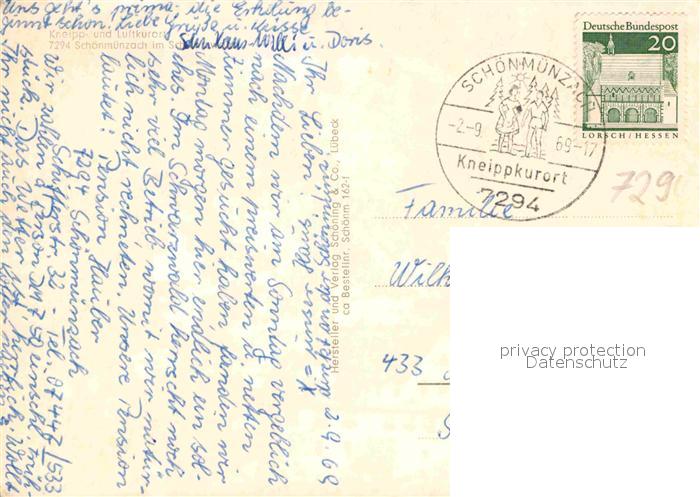 Uns geht's prima. die Erholung be-
ginnt schon! Liebe Grüße u. Küsse
Euer Klaus-Willi u. Doris.
Kneipp- und Luftkurort
7294 Schönmünzach im Sch
Schönmünzach, am 2.9.69
Ihr Lieben,
Nachdem wir am Sonntag vergeblich
nach einem preiswerten u. netten
Zimmer gesucht haben, fanden wir
Montag morgen hier endlich ein sol-
ches. Im Schwarzwald herrscht noch
sehr viel Betrieb, womit wir natür-
lich nicht rechneten. Unsere Pension
lautet: Pension Häuber
7294 Schönmünzach
32 - Tel. 07447/533
Wir zahlen pro Person DM 7,50 einschl. Früh-
stück. Das Wetter ist
Ihr nicht auch
Hersteller und Verlag Schöning & Co., Lübeck
ca Bestellnr. Schönm 162-f
Deutsche Bundespost
20
LORSCH/HESSEN
SCHÖNMÜNZACH
-2.-9.
69-17
Kneippkurort
7294
729
Familie
Wilh
433
privacy protection
Datenschutz